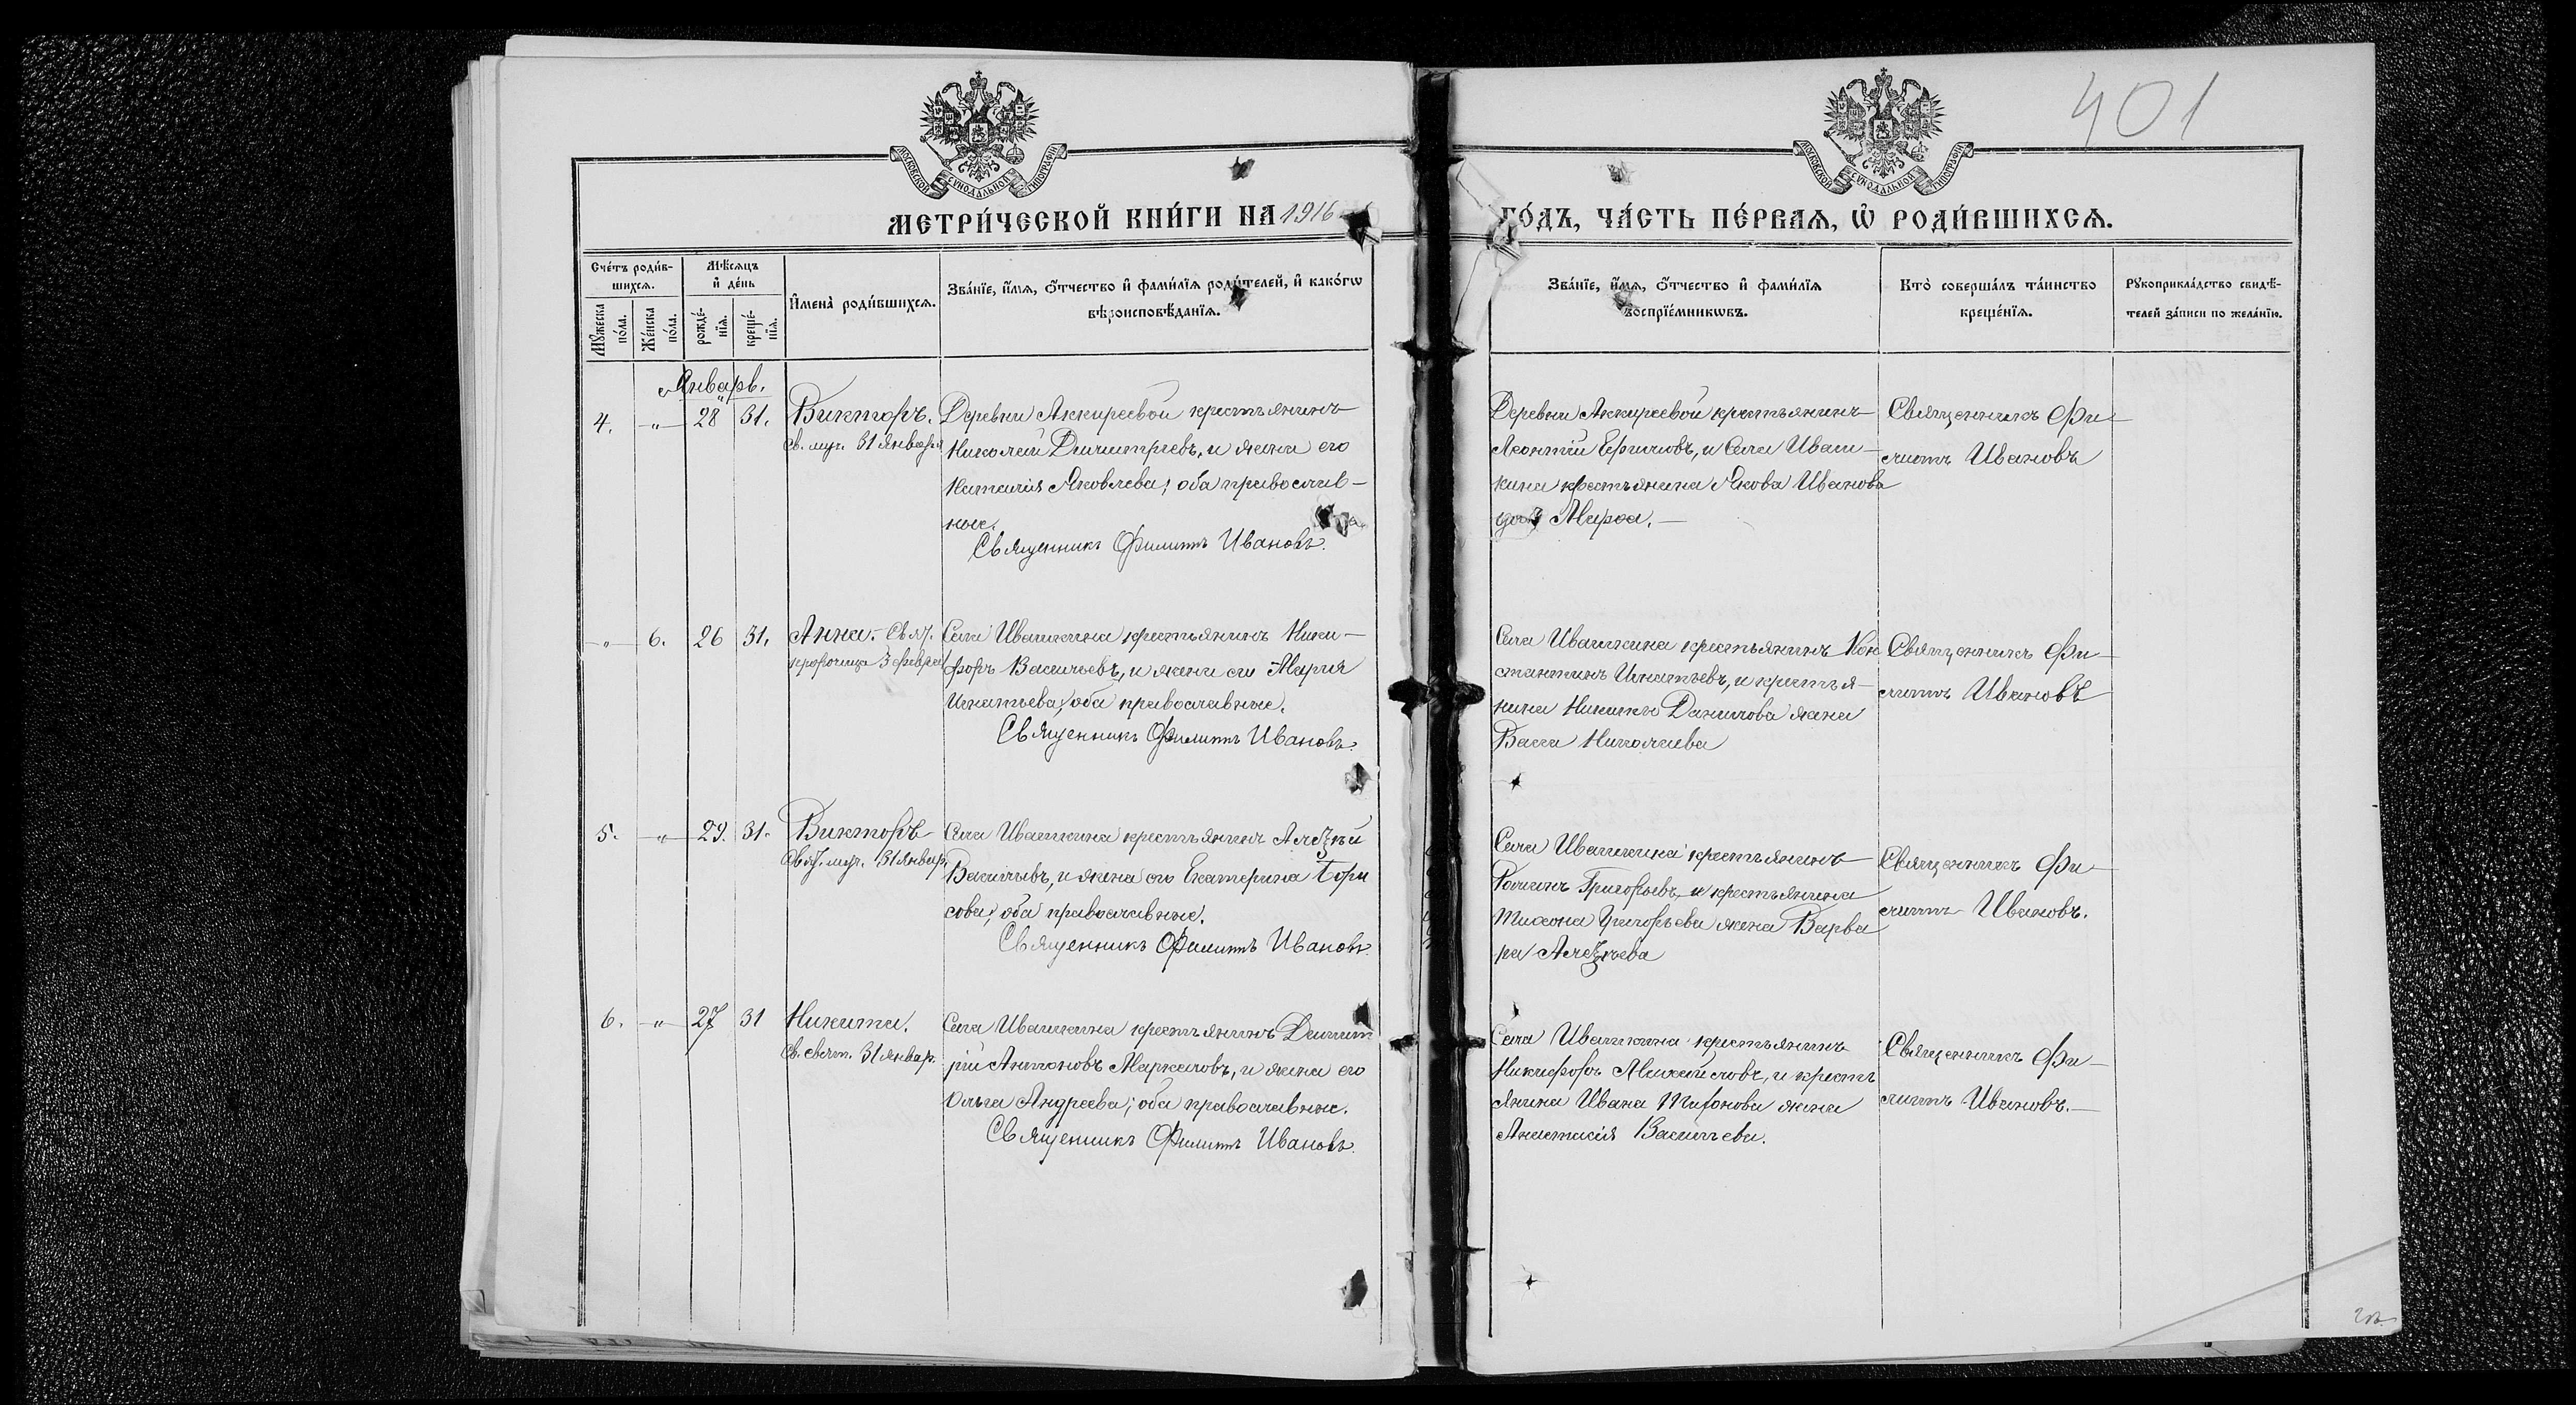 401
МОСКОВСКОЙ СѴНОДАЛЬНОЙ ТИПОГРАФІИ
МОСКОВСКОЙ СѴНОДАЛЬНОЙ ТИПОГРАФІИ
МЕТРИ́ЧЕСКОЙ КНИ́ГИ НА 1916 ГО́ДЪ, ЧА́СТЬ ПЕ́РВАѦ, Ѽ РОДИ́ВШИХСѦ.
Сче́тъ роди́в-
шихсѧ.
Мѣ́сѧцъ
и҆ де́нь
Мꙋ́жеска по́ла.
Же́нска по́ла.
рожде́-
нїѧ.
креще́-
нїѧ.
И҆мена̀ роди́вшихсѧ.
Зва́нїе, и҆́мѧ, ѻ҆́тчество и҆ фами́лїѧ роди́телей, и҆ како́гѡ
вѣроисповѣ́данїѧ.
Зва́нїе, и҆́мѧ, ѻ҆́тчество и҆ фами́лїѧ
воспрїе́мникѡвъ.
Кто̀ соверша́лъ та́инство
креще́нїѧ.
Рꙋкоприкла́дство свидѣ́-
телей за́писи по жела́нїю.
Январь.
4. " 28 31. Викторъ.
Св. муч. 31 Января
Деревни Аккиреевой крестьянинъ
Николай Димитріевъ, и жена его
Наталія Яковлева; оба православ-
ные.
Священникъ Филиппъ Ивановъ.
Деревни Аккиреевой крестьянинъ
Леонтій Ефимовъ, и Села Иваш-
кина крестьянина Якова Иванова
дочь Марѳа.
Священникъ Фи-
липпъ Ивановъ
" 6. 26 31. Анна. Свят.
пророчица 3 февраля
Села Ивашкина крестьянинъ Ники-
форъ Васильевъ, и жена его Марія
Игнатьева; оба православные.
Священникъ Филиппъ Ивановъ.
Села Ивашкина крестьянинъ Кон
стантинъ Игнатьевъ, и крестья-
нина Никиты Данилова жена
Васса Николаева
Священникъ Фи-
липпъ Ивановъ
5. " 29. 31. Викторъ
Свят. муч. 31 Январ.
Села Ивашкина крестьянинъ Алеѯѣй
Васильевъ, и жена его Екатерина Бори
сова; оба православные.
Священникъ Филиппъ Ивановъ.
Села Ивашкина крестьянинъ
Григорьевъ, и крестьянина
Тихона Григорьева жена Варва
ра Алеѯѣева
Священникъ Фи-
липпъ Ивановъ.
6. " 27 31 Никита.
Св. свят. 31 январ.
Села Ивашкина крестьянинъ Димит
рій Антоновъ Маркеловъ, и жена его
Ольга Андреева; оба православные.
Священникъ Филиппъ Ивановъ.
Села Ивашкина крестьянинъ
Никифоръ Михайловъ, и кресть
янина Ивана Тихонова жена
Анастасія Васильева.
Священникъ Фи-
липпъ Ивановъ.